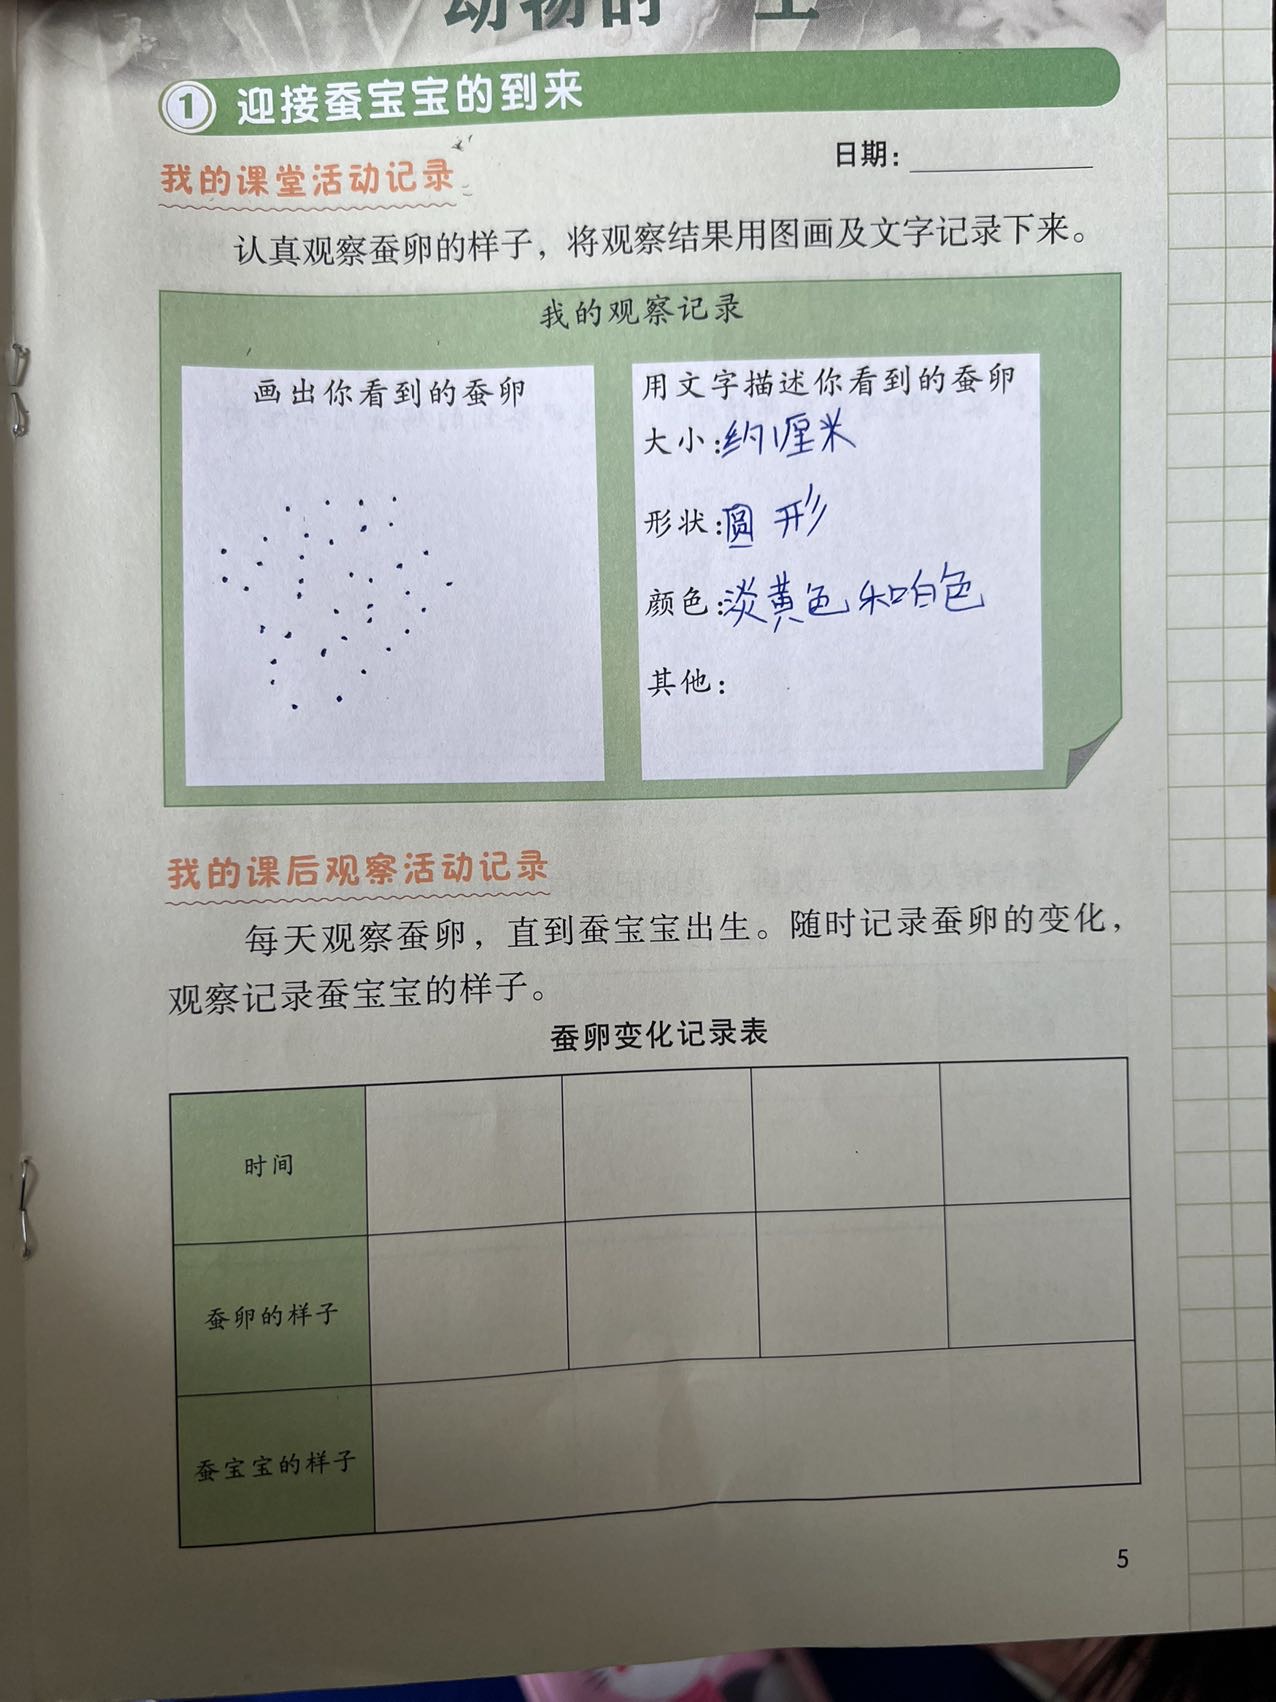 动物的一生
1 迎接蚕宝宝的到来
我的课堂活动记录
日期：
认真观察蚕卵的样子，将观察结果用图画及文字记录下来。
我的观察记录
画出你看到的蚕卵
用文字描述你看到的蚕卵
大小：约1厘米
形状：圆形
颜色：淡黄色和白色
其他：
我的课后观察活动记录
每天观察蚕卵，直到蚕宝宝出生。随时记录蚕卵的变化，
观察记录蚕宝宝的样子。
蚕卵变化记录表
时间
蚕卵的样子
蚕宝宝的样子
5